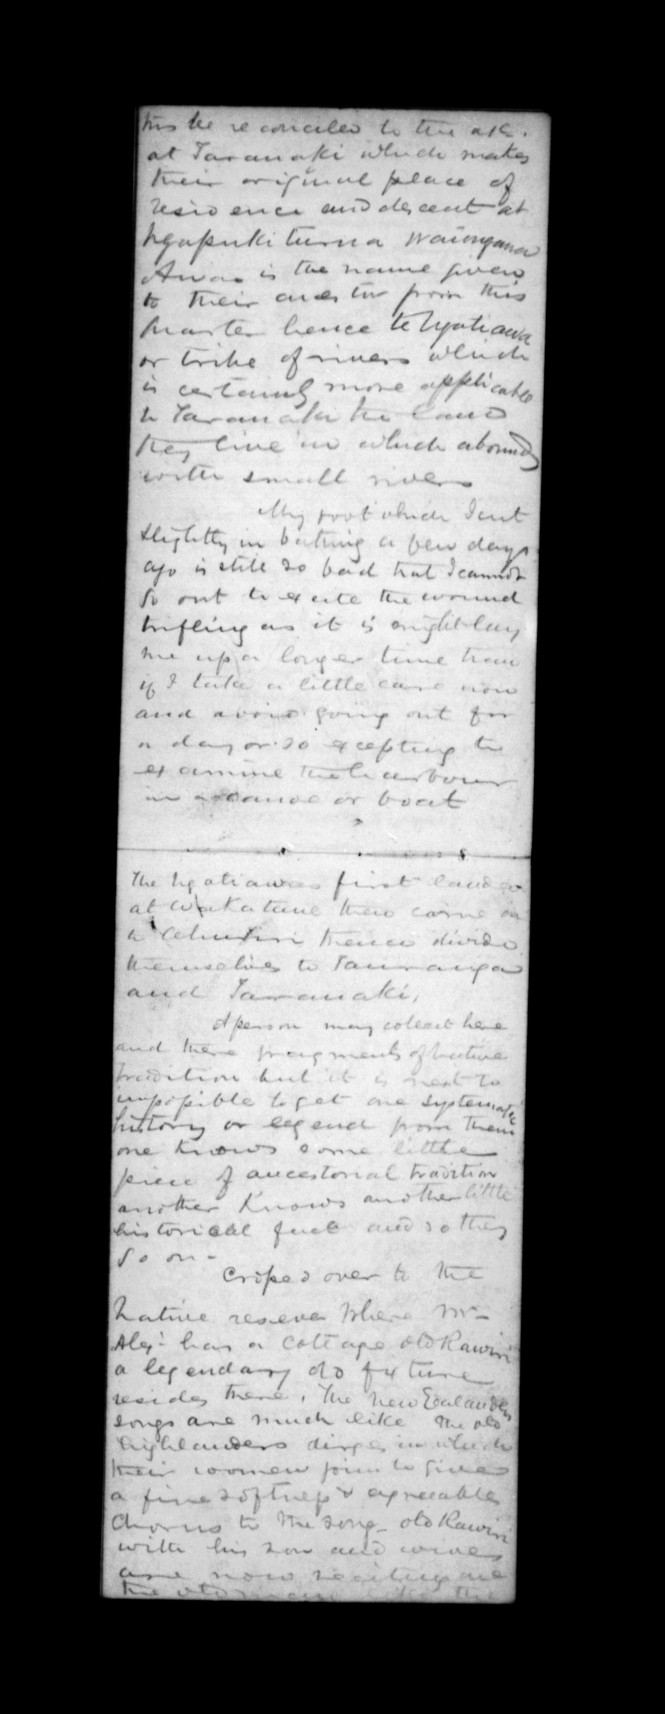 this be reconciled to the
at Taranaki which makes
their original place of
residence and descent at
Ngapukiturua Waiongana
Awa is the name given
to their ancestor from this
quarter hence te Ngatiawa
or tribe of rivers which
is certainly more applicable
to Taranaki the land
they live in which abounds
with small rivers
My foot which I cut
slightly in bathing a few days
ago is still so bad that I cannot
go out to excite the wound
trifling as it is might lay
me up a longer time than
if I take a little care now
and avoid going out for
a day or so excepting to
examine the harbour
in a canoe or boat
The Ngatiawas first landed
at Wakatane then came on
to thence divided
themselves to Tauranga
and Taranaki.
A person may collect here
and there fragments of native
tradition but it is next to
impossible to get one systematic
history or legend from them
one knows some little
piece of ancestorial tradition
another Knows another little
historical fact and so they
go on -
Crossed over to the
Native reserve where Mr
has a cottage old Rawiri
a legendary old fixture
resides there. The New Zealanders
songs are much like the old
highlanders dirges in which
their women join to give
a fine softness & agreeable
chorus to the song - old Rawiri
with his son and wives
are now reciting one
the old man like the